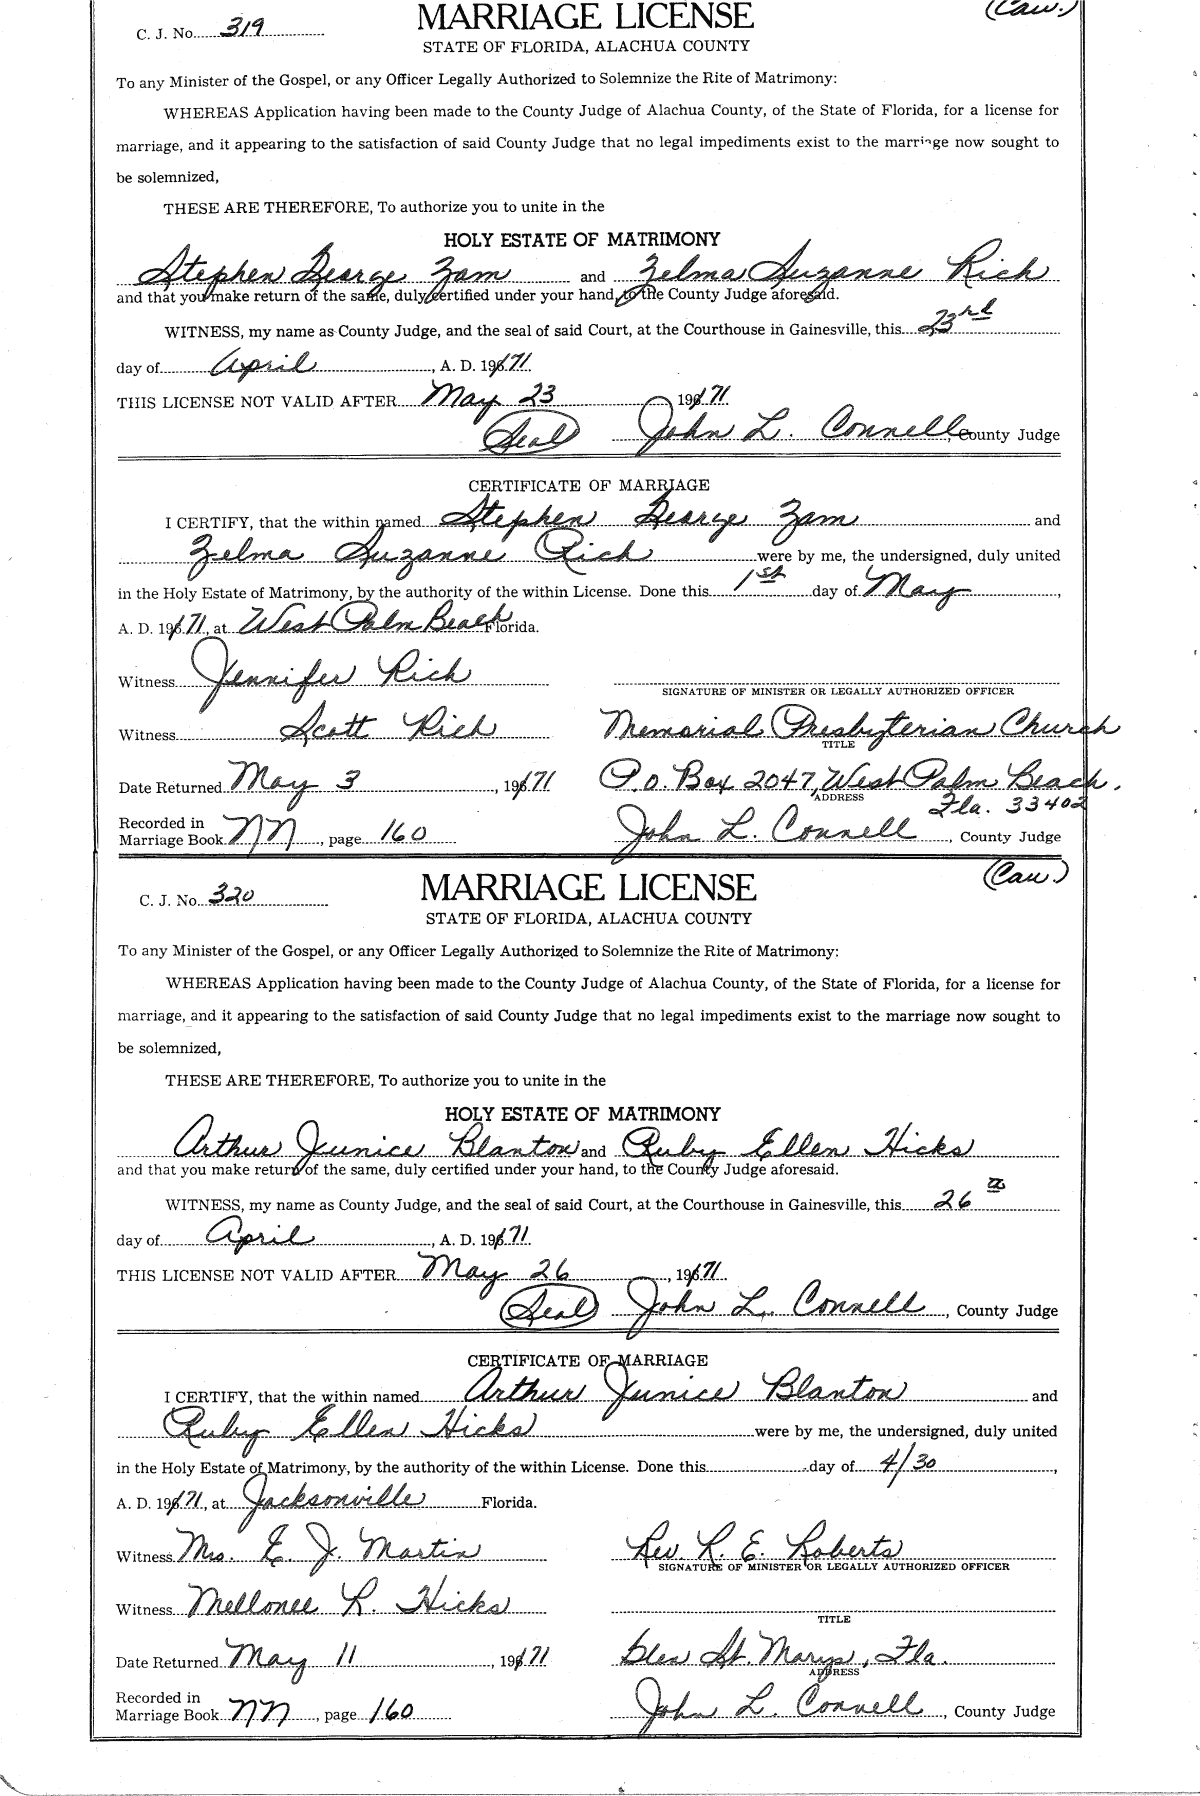 (Cau.)
C. J. No. 319 MARRIAGE LICENSE
STATE OF FLORIDA, ALACHUA COUNTY
To any Minister of the Gospel, or any Officer Legally Authorized to Solemnize the Rite of Matrimony:
WHEREAS Application having been made to the County Judge of Alachua County, of the State of Florida, for a license for
marriage, and it appearing to the satisfaction of said County Judge that no legal impediments exist to the marriage now sought to
be solemnized,
THESE ARE THEREFORE, To authorize you to unite in the
HOLY ESTATE OF MATRIMONY
Stephen George Zam and Zelma Suzanne Rich
and that you make return of the same, duly certified under your hand, to the County Judge aforesaid.
WITNESS, my name as County Judge, and the seal of said Court, at the Courthouse in Gainesville, this 23rd
day of April, A. D. 1971.
THIS LICENSE NOT VALID AFTER May 23 1971.
(Seal) John L. Connell, County Judge
CERTIFICATE OF MARRIAGE
I CERTIFY, that the within named Stephen George Zam and
Zelma Suzanne Rich were by me, the undersigned, duly united
in the Holy Estate of Matrimony, by the authority of the within License. Done this 1st day of May,
A. D. 1971, at West Palm Beach Florida.
Witness Jennifer Rich
SIGNATURE OF MINISTER OR LEGALLY AUTHORIZED OFFICER
Witness Scott Rich Memorial Presbyterian Church
TITLE
Date Returned May 3, 1971 P.O. Box 2047, West Palm Beach,
ADDRESS Fla. 33402
Recorded in
Marriage Book NN, page 160 John L. Connell, County Judge
(Cau.)
C. J. No. 320 MARRIAGE LICENSE
STATE OF FLORIDA, ALACHUA COUNTY
To any Minister of the Gospel, or any Officer Legally Authorized to Solemnize the Rite of Matrimony:
WHEREAS Application having been made to the County Judge of Alachua County, of the State of Florida, for a license for
marriage, and it appearing to the satisfaction of said County Judge that no legal impediments exist to the marriage now sought to
be solemnized,
THESE ARE THEREFORE, To authorize you to unite in the
HOLY ESTATE OF MATRIMONY
Arthur Junice Blanton and Ruby Ellen Hicks
and that you make return of the same, duly certified under your hand, to the County Judge aforesaid.
WITNESS, my name as County Judge, and the seal of said Court, at the Courthouse in Gainesville, this 26th
day of April, A. D. 1971.
THIS LICENSE NOT VALID AFTER May 26, 1971.
(Seal) John L. Connell, County Judge
CERTIFICATE OF MARRIAGE
I CERTIFY, that the within named Arthur Junice Blanton and
Ruby Ellen Hicks were by me, the undersigned, duly united
in the Holy Estate of Matrimony, by the authority of the within License. Done this day of 4/30,
A. D. 1971, at Jacksonville Florida.
Witness Mrs. E. J. Martin Rev. R. E. Roberts
SIGNATURE OF MINISTER OR LEGALLY AUTHORIZED OFFICER
Witness Mellonee R. Hicks
TITLE
Date Returned May 11, 1971 Glen St. Marys, Fla.
ADDRESS
Recorded in
Marriage Book NN, page 160 John L. Connell, County Judge